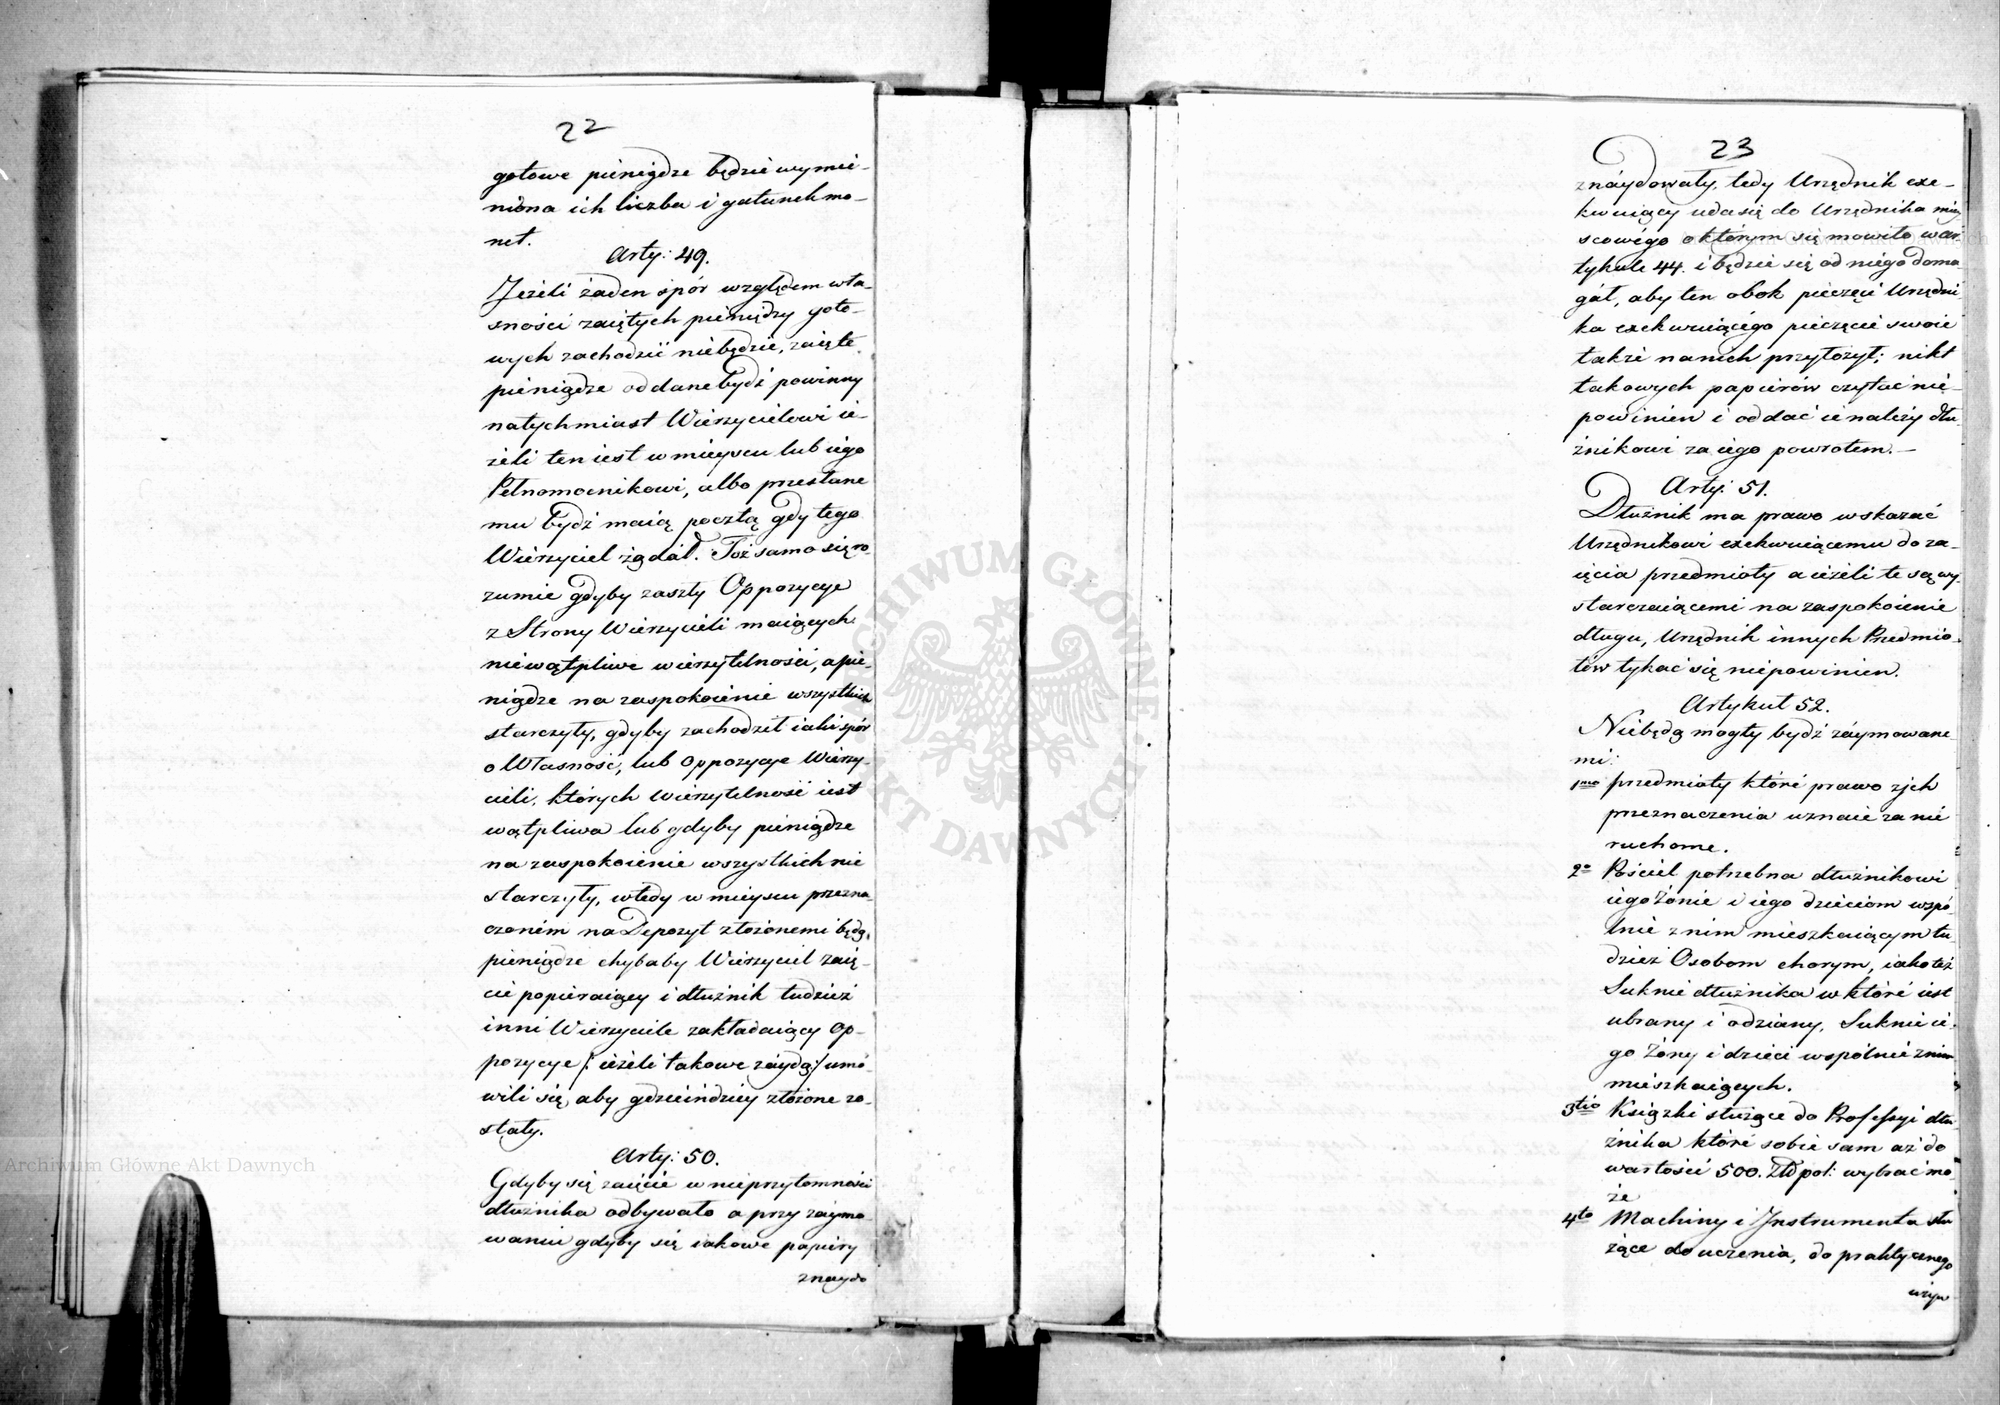 22
gotowe pieniądze będzie wymie-
niona ich liczba i gatunek mo-
net.
Arty: 49.
Jeżeli żaden spór względem wła-
sności zaiętych pieniędzy goto-
wych zachodzić niebędzie, zaięte
pieniądze oddane bydź powinny
natychmiast Wierzycielowi ie-
żeli ten iest w mieyscu lub iego
Pełnomocnikowi, albo przesłane
mu bydź maią pocztą gdy tego
Wierzyciel żądał. Toż samo się ro-
zumie gdyby zaszły Oppozycye
z Strony Wierzycieli maiących
niewątpliwe wierzytelności, a pie-
niądze na zaspokoienie wszystkich
starczyły, gdyby zachodził iaki spór
o Własność, lub Oppozycye Wierzy-
cieli, których Wierzytelność iest
wątpliwa lub gdyby pieniądze
na zaspokoienie wszystkich nie
starczyły, wtedy w mieyscu przezna-
czonem na Depozyt złożonemi będą,
pieniądze chybaby Wierzyciel zaię-
cie popieraiący i dłużnik tudzież
inni Wierzyciele zakładaiący Op-
pozycye /: ieżeli takowe zaydą :/ umó-
wili się, aby gdzieindziey złożone zo-
stały.
Arty: 50.
Gdyby się zaięcie w nieprzytomności
dłużnika odbywało a przy zaymo-
waniu gdyby się iakowe papiery
znaydo
23
znaydowały, tedy Urzędnik exe-
kwuiący uda się do Urzędnika miey
scowego o którym się mówiło w ar
tykule 44. i będzie się od niego doma
gał, aby ten obok pieczęci Urzędni
ka exekwuiącego pieczęcie swoie
także na nich przyłożył; nikt
takowych papierów czytać nie-
powinien i oddać ie należy dłu-
żnikowi za iego powrotem. –
Arty: 51.
Dłużnik ma prawo wskazać
Urzędnikowi exekwuiącemu do za-
ięcia przedmioty a ieżeli te są wy-
starczaiącemi na zaspokoienie
długu, Urzędnik innych Przedmio-
tów tykać się niepowinien.
Artykuł 52.
Niebędą mogły bydź zaymowane-
mi:
1mo przedmioty które prawo z ich
przeznaczenia uznaie za nie
ruchome.
2o Pościel potrzebna dłużnikowi
iego Żonie i iego dzieciom wspó-
lnie z nim mieszkaiącym tu-
dzież Osobom chorym, iako też
Suknie dłużnika w które iest
ubrany i odziany, Suknie ie-
go Żony i dzieci wspólnie z nim
mieszkaiących.
3tio Książki służące do Professyi dłu-
żnika które sobie sam aż do
wartości 500. Złł pol: wybrać mo-
że
4to Machiny i Instrumenta słu
żące do uczenia, do praktycznego
używ
Archiwum Główne Akt Dawnych
Archiwum Główne Akt Dawnych
ARCHIWUM GŁÓWNE · AKT DAWNYCH ·